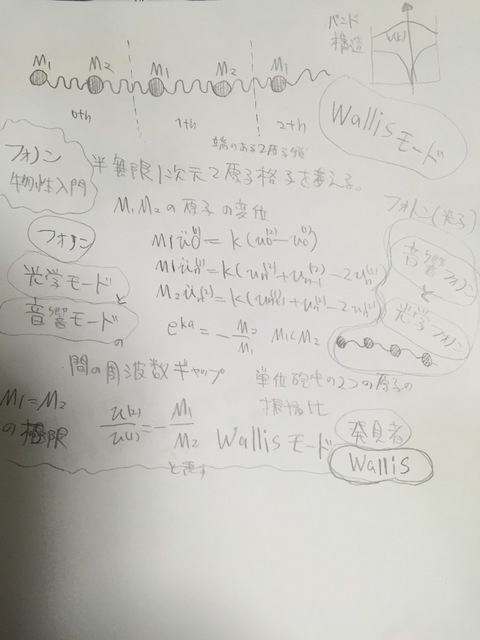 バンド
構造
ω(k)
M1 M2 M1 M2 M1
0th 1th 2th
端のある2原子鎖
Wallisモード
フォノン
物性入門
半無限1次元2原子格子を考える。
M1 M2の原子の変位
フォトン(光子)
フォノン
M1ü0(1) = k(u0(2) - u0(1))
音響フォノン
と
光学フォノン
光学モードと
M1ün(1) = k(un(2) + un-1(2) - 2un(1))
M2ün(2) = k(
音響モードの
e^ka = -M2/M1 M1<M2
間の周波数ギャップ
単位砲中の2つの原子の
振幅比
M1=M2
の極限
u(2)/u(1) = -M1/M2 Wallisモード
と患す
発見者
Wallis